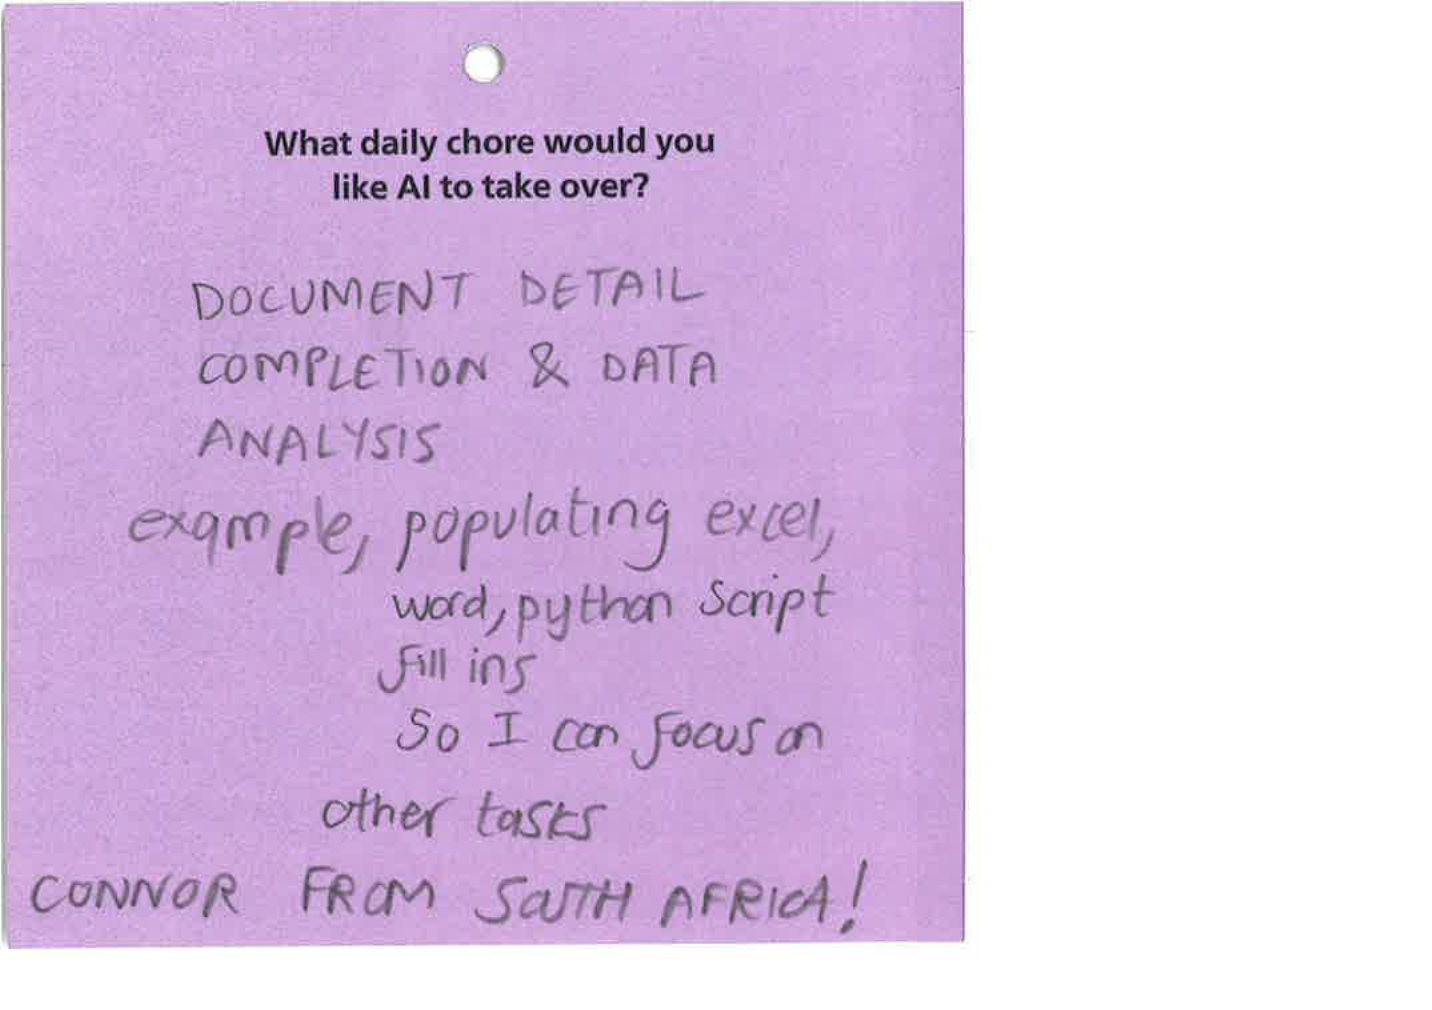 What daily chore would you
like AI to take over?
DOCUMENT DETAIL
COMPLETION & DATA
ANALYSIS
example, populating excel,
word, python script
fill ins
So I can focus on
other tasks
CONNOR FROM SOUTH AFRICA!